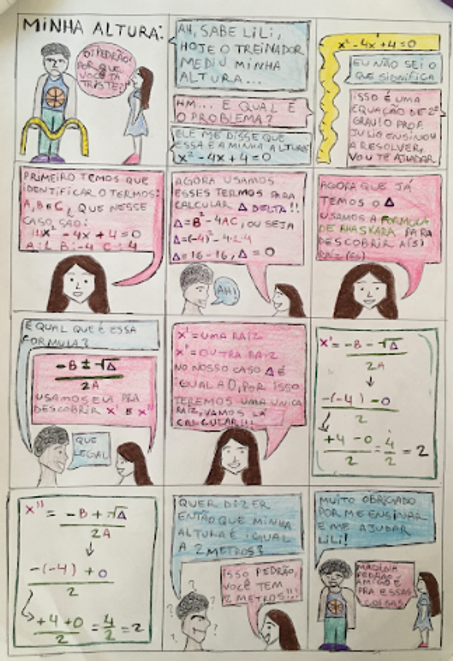 MINHA ALTURA:
OI PEDRÃO!
POR QUE
VOCÊ TÁ
TRISTE?
AH, SABE LILI,
HOJE O TREINADOR
MEDIU MINHA
ALTURA...
HM... E QUAL É
O PROBLEMA?
ELE ME DISSE QUE
ESSA É A MINHA ALTURA
X²-4X+4=0
X²-4X+4=0
EU NÃO SEI O
QUE SIGNIFICA
ISSO É UMA
EQUAÇÃO DE 2º
GRAU! O PROF.
JULIO ENSINOU
A RESOLVER,
VOU TE AJUDAR
PRIMEIRO TEMOS QUE
IDENTIFICAR O TERMOS:
A, B E C, QUE NESSE
CASO SÃO:
1X² -4X+4=0
A:1 B:-4 C:4
AGORA USAMOS
ESSES TERMOS PARA
CALCULAR Δ DELTA!!
Δ=B²-4AC, OU SEJA
Δ=(-4)²-4.1.4
Δ=16-16, Δ=0
AH!
AGORA QUE JÁ
TEMOS O Δ
USAMOS A FORMULA
DE BHASKARA PARA
DESCOBRIR A(S)
RAIZ(ES)
E QUAL QUE É ESSA
FORMULA?
-B±√Δ
2A
USAMOS ELA PRA
DESCOBRIR X' E X''
QUE
LEGAL
X'=UMA RAIZ
X''=OUTRA RAIZ
NO NOSSO CASO Δ É
IGUAL A 0, POR ISSO
TEREMOS UMA UNICA
RAIZ, VAMOS LÁ
CALCULAR!!!
X'= -B-√Δ
2A
-(-4)-0
2
+4-0=4=2
2 2
X''= -B+√Δ
2A
-(-4)+0
2
+4+0=4=2
2 2
QUER DIZER
ENTÃO QUE MINHA
ALTURA É IGUAL
A 2 METROS?
? ? ? ?
ISSO PEDRÃO,
VOCÊ TEM
2 METROS!!!
MUITO OBRIGADO
POR ME ENSINAR
E ME AJUDAR
LILI!
MAGINA
PEDRÃO,
AMIGO É
PRA ESSAS
COISAS